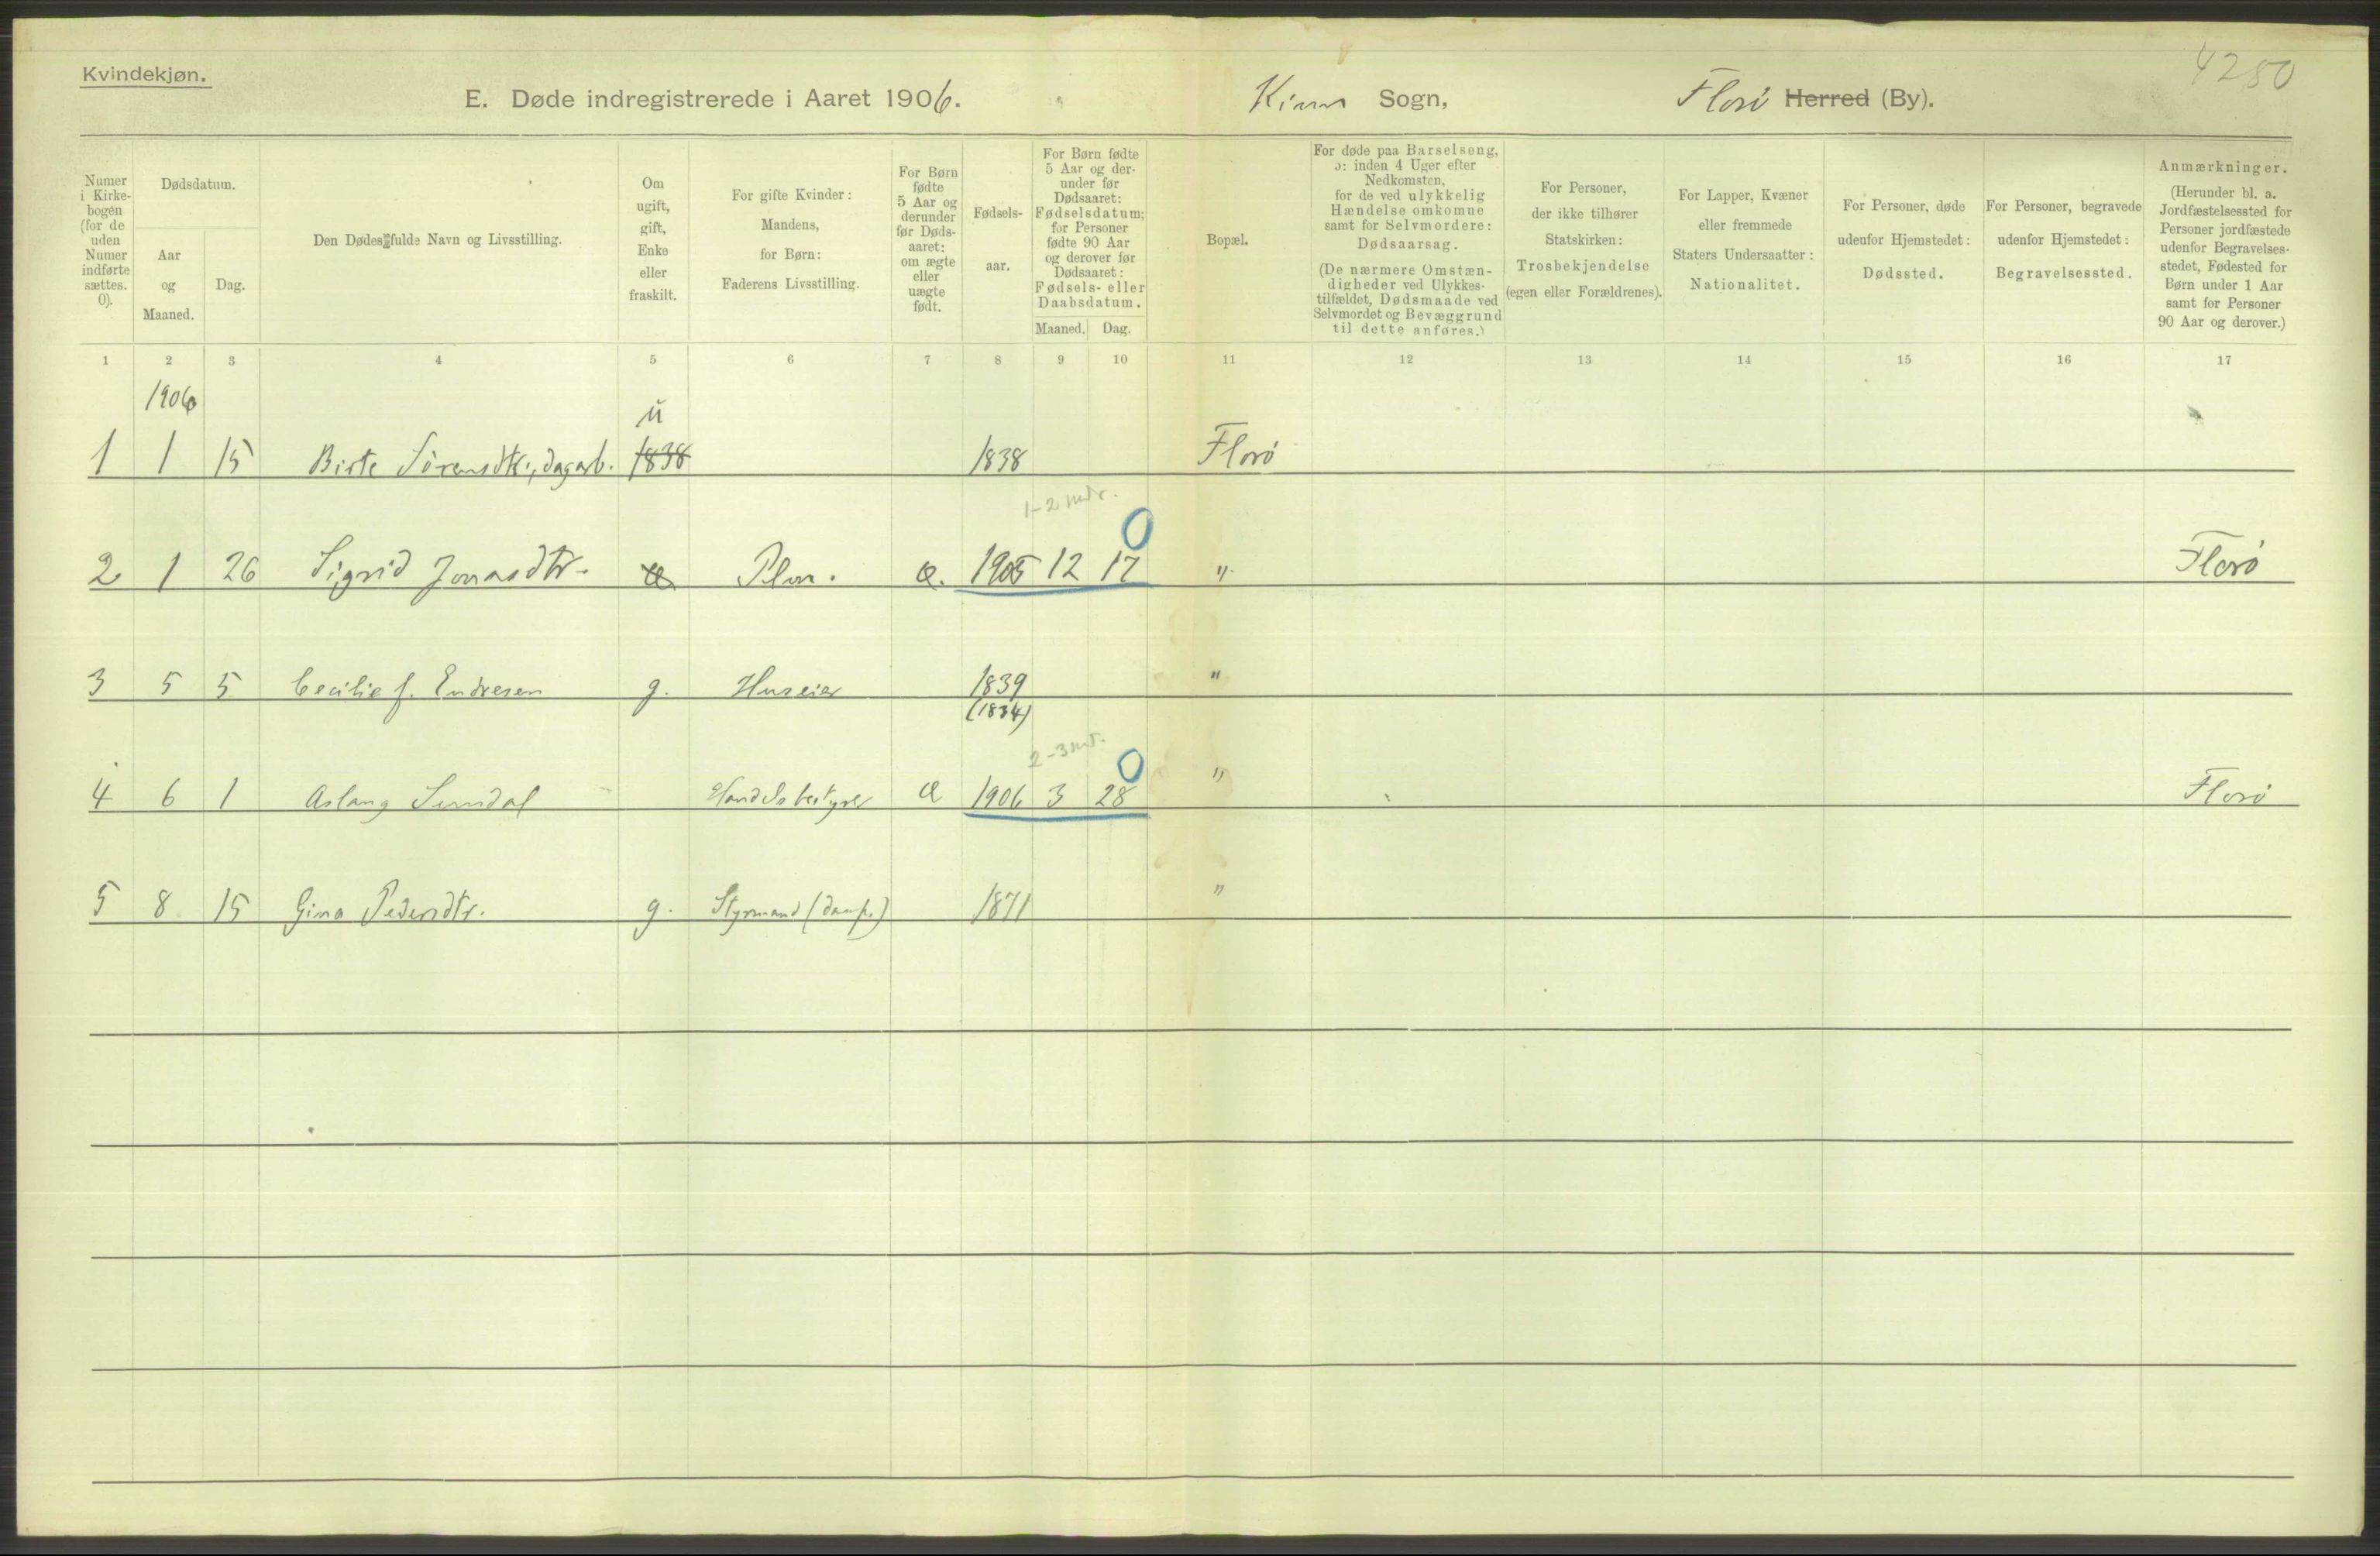 4250
Kvindekjøn.
E. Døde indregistrerede i Aaret 1906. Kinn Sogn, Florø Herred (By).
Numer i Kirkebogen (for de uden Numer indførte sættes. 0).
Dødsdatum.
Aar og Maaned.
Dag.
Den Dødes fulde Navn og Livsstilling.
Om ugift, gift, Enke eller fraskilt.
For gifte Kvinder: Mandens, for Børn: Faderens Livsstilling.
For Børn fødte 5 Aar og derunder før Dødsaaret: om ægte eller uægte født.
Fødselsaar.
For Børn fødte 5 Aar og derunder før Dødsaaret: Fødselsdatum; for Personer fødte 90 Aar og derover før Dødsaaret: Fødsels- eller Daabsdatum.
Maaned. Dag.
Bopæl.
For døde paa Barselseng, ɔ: inden 4 Uger efter Nedkomsten, for de ved ulykkelig Hændelse omkomne samt for Selvmordere: Dødsaarsag. (De nærmere Omstændigheder ved Ulykkestilfældet, Dødsmaade ved Selvmordet og Bevæggrund til dette anføres.)
For Personer, der ikke tilhører Statskirken: Trosbekjendelse (egen eller Forældrenes).
For Lapper, Kvæner eller fremmede Staters Undersaatter: Nationalitet.
For Personer, døde udenfor Hjemstedet: Dødssted.
For Personer, begravede udenfor Hjemstedet: Begravelsessted.
Anmærkninger. (Herunder bl. a. Jordfæstelsessted for Personer jordfæstede udenfor Begravelsesstedet, Fødested for Børn under 1 Aar samt for Personer 90 Aar og derover.)
1 2 3 4 5 6 7 8 9 10 11 12 13 14 15 16 17
1906
u
1 1 15 Birte Sørensdtr., dagarb. 1838 1838 Florø
1-2 mdr.
0
2 1 26 Sigrid Jonasdtr. Æ Plon. Æ. 1905 12 17 " Florø
3 5 5 Cecilie f. Endresen g. Huseier 1839 "
(1834)
2-3 mdr.
0
4 6 1 Aslaug Sundal Handelsbestyrer Æ 1906 3 28 " Florø
5 8 15 Gina Pedersdtr. g. Styrmand (damp.) 1871 "